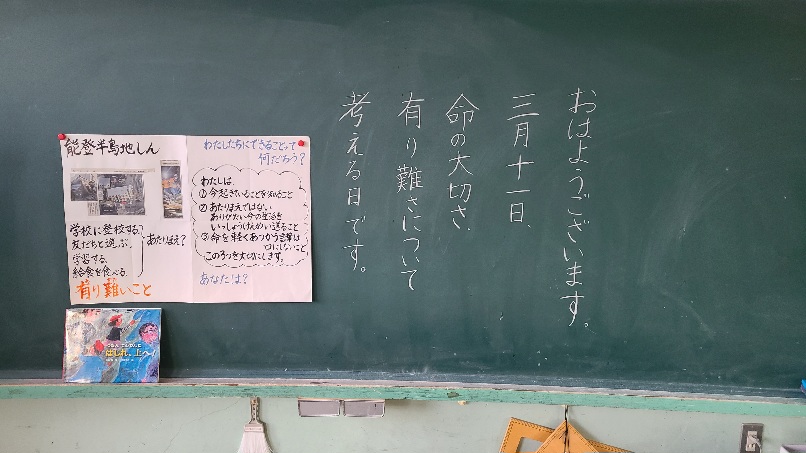 おはようございます。
三月十一日、
命の大切さ、
有り難さについて
考える日です。
能登半島地しん
学校に登校する。
友だちと遊ぶ。
学習する。
給食を食べる。
あたりまえ？
有り難いこと
わたしたちにできることって
何だろう？
わたしは、
①今起きていることを知ること
②あたりまえではない
ありがたい今の生活を
いっしょうけんめい送ること
③命を軽くあつかう言葉は
口にしないこと
この3つを大切にします。
あなたは？
はしれ、上へ！